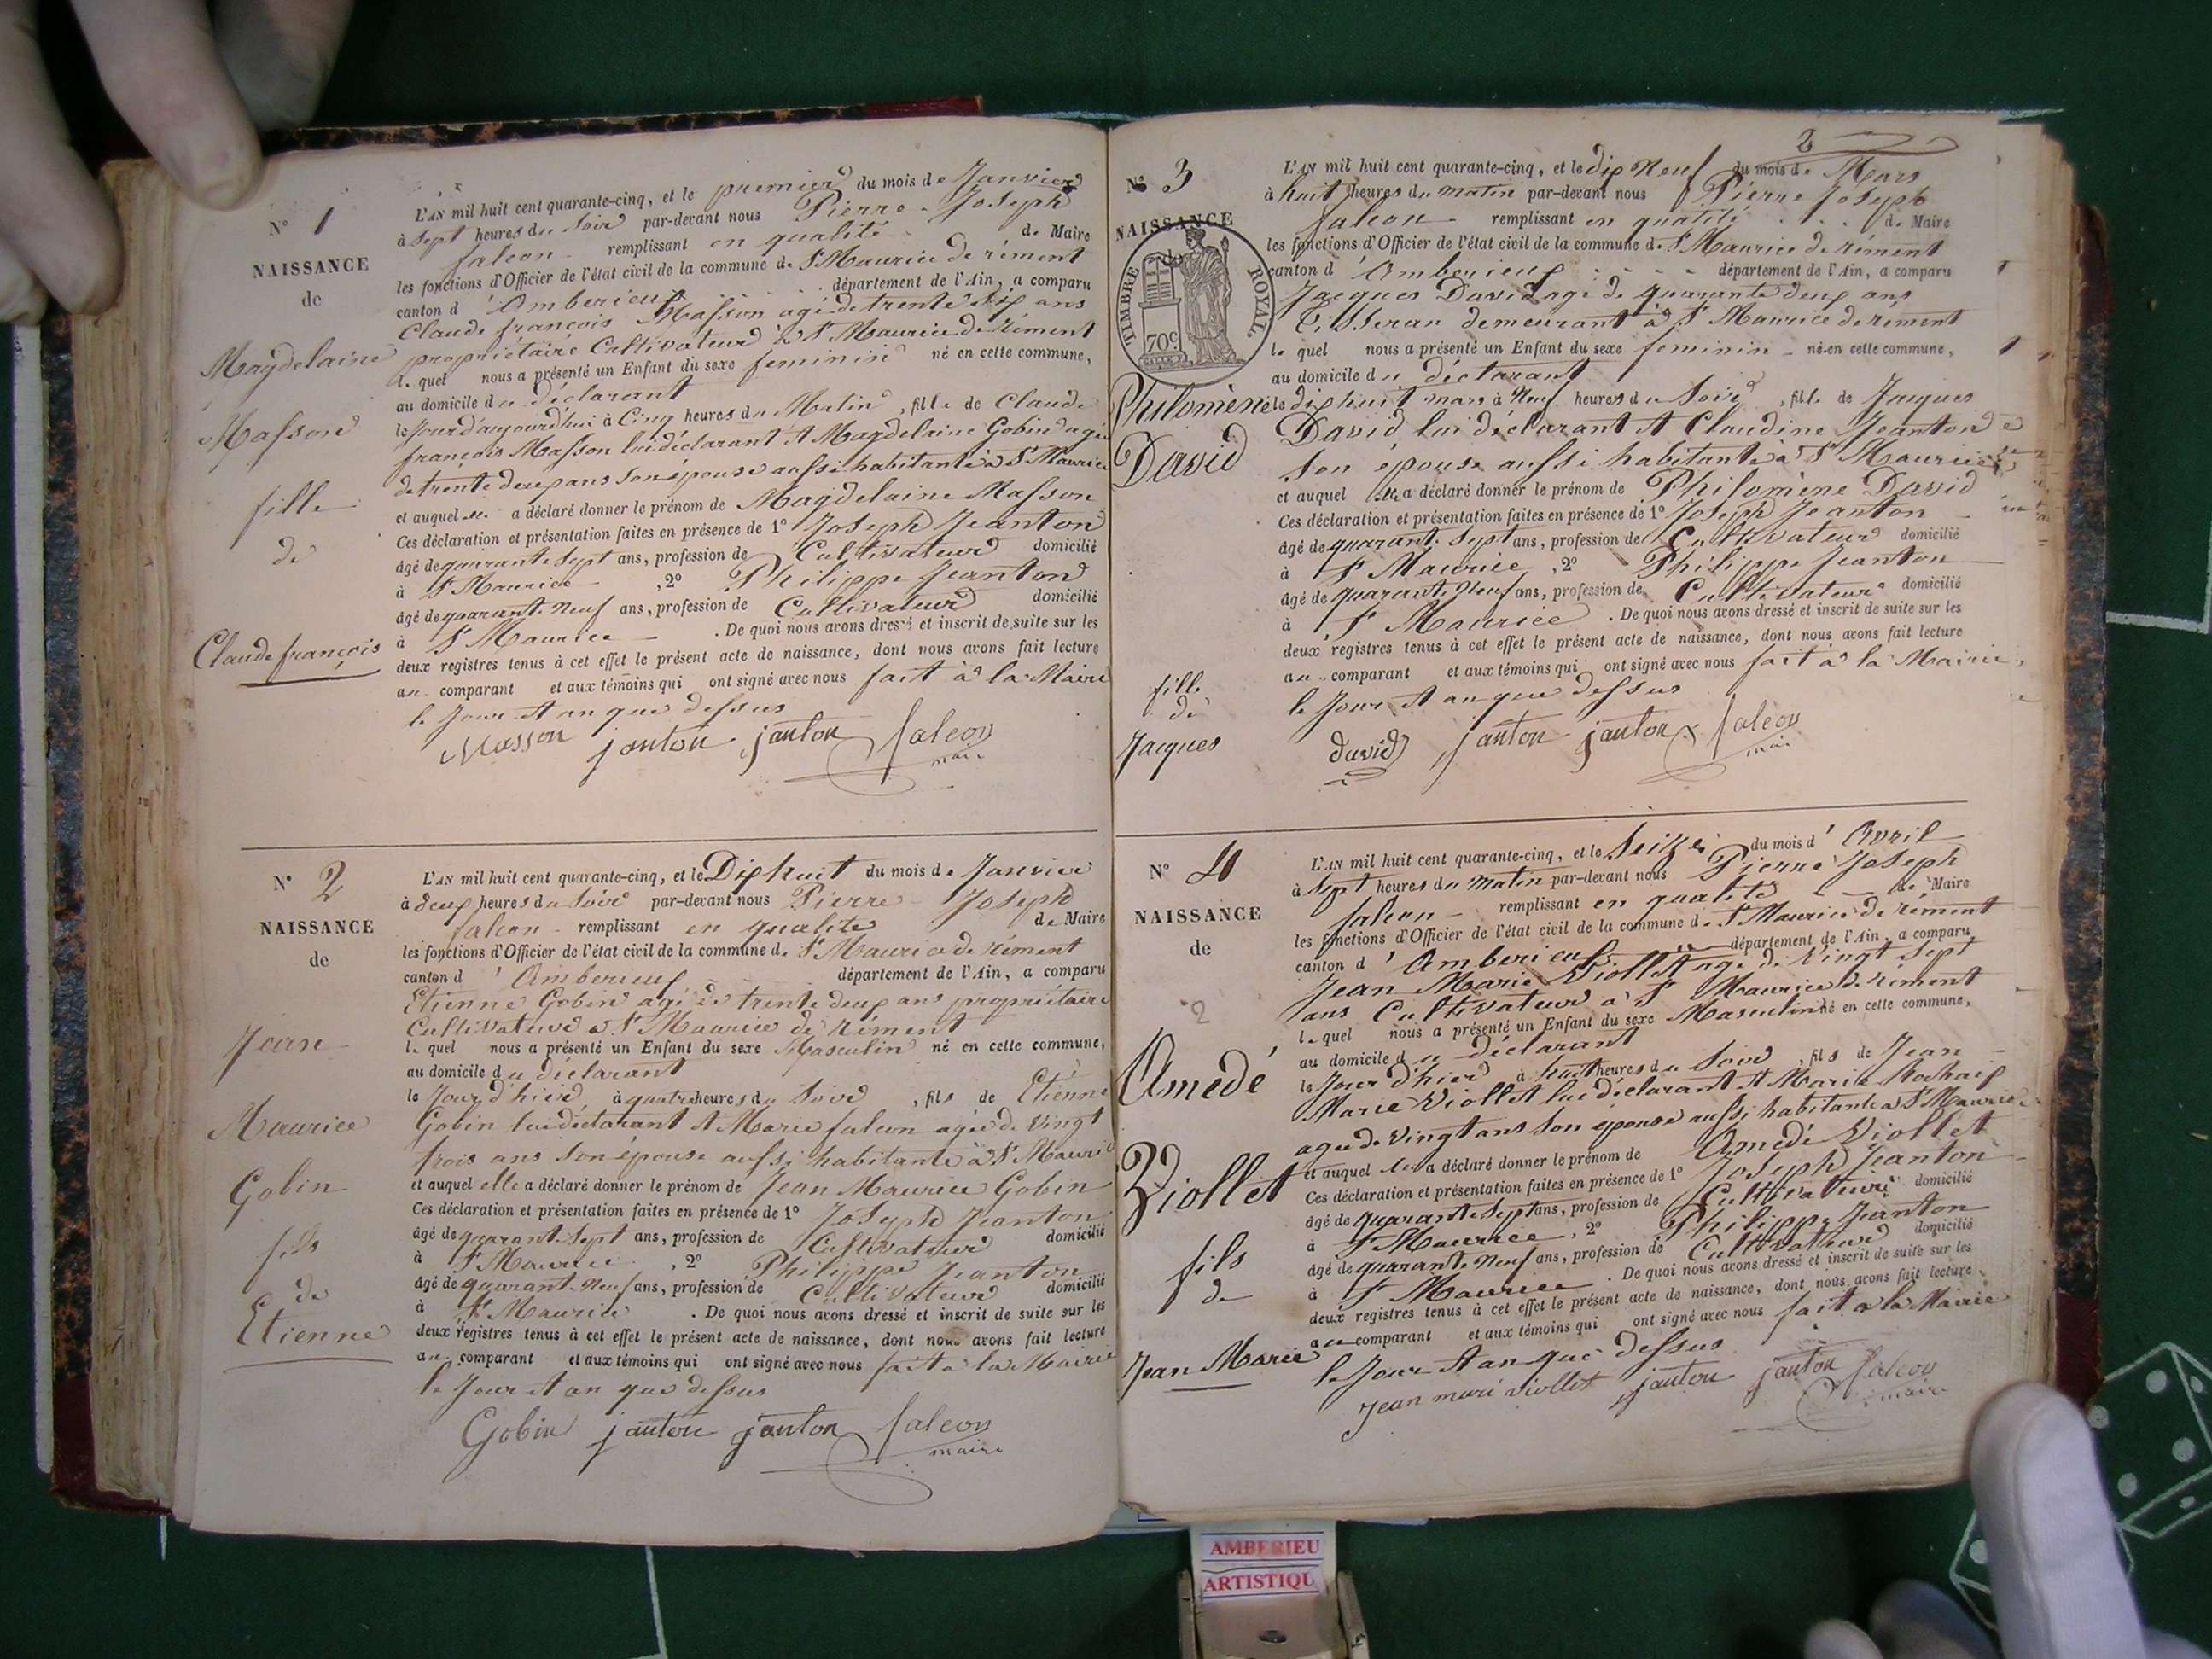 N° 1
NAISSANCE
de
Magdelaine
Masson
fille
de
Claude françois
L'AN mil huit cent quarante-cinq, et le premier du mois de Janvier
à sept heures du soir par-devant nous Pierre Joseph
falcon remplissant en qualité de Maire
les fonctions d'Officier de l'état civil de la commune de St Maurice de rément
canton d'Amberieux département de l'Ain, a comparu
Claude françois Masson agé de trente six ans
propriétaire Cultivateur à St Maurice de rément
le quel nous a présenté un Enfant du sexe feminin né en cette commune,
au domicile du déclarant
le Jour d'aujourd'hui à Cinq heures du Matin, fille de Claude
françois Masson lui déclarant et Magdelaine Gobin agée
de trente deux ans son épouse aussi habitante à St Maurice
et auquel a déclaré donner le prénom de Magdelaine Masson
Ces déclaration et présentation faites en présence de 1° Joseph Jeanton
âgé de quarante sept ans, profession de Cultivateur domicilié
à St Maurice, 2° Philippe Jeanton
âgé de quarante neuf ans, profession de Cultivateur domicilié
à St Maurice. De quoi nous avons dressé et inscrit de suite sur les
deux registres tenus à cet effet le présent acte de naissance, dont nous avons fait lecture
au comparant et aux témoins qui ont signé avec nous fait à la Mairie
le Jour et an que dessus
Masson janton janton falcon
maire
N° 2
NAISSANCE
de
Jean
Maurice
Gobin
fils
de
Etienne
L'AN mil huit cent quarante-cinq, et le Dix huit du mois de Janvier
à deux heures du soir par-devant nous Pierre Joseph
falcon remplissant en qualité de Maire
les fonctions d'Officier de l'état civil de la commune de St Maurice de rément
canton d'Amberieux département de l'Ain, a comparu
Etienne Gobin agé de trente deux ans propriétaire
Cultivateur à St Maurice de rément
le quel nous a présenté un Enfant du sexe Masculin né en cette commune,
au domicile du déclarant
le Jour d'hier à quatre heures du soir, fils de Etienne
Gobin lui déclarant et Marie falcon agée de vingt
trois ans son épouse aussi habitante à St Maurice
et auquel elle a déclaré donner le prénom de Jean Maurice Gobin
Ces déclaration et présentation faites en présence de 1° Joseph Jeanton
âgé de quarante sept ans, profession de Cultivateur domicilié
à St Maurice, 2° Philippe Jeanton
âgé de quarante neuf ans, profession de Cultivateur domicilié
à St Maurice. De quoi nous avons dressé et inscrit de suite sur les
deux registres tenus à cet effet le présent acte de naissance, dont nous avons fait lecture
au comparant et aux témoins qui ont signé avec nous fait à la Mairie
le Jour et an que dessus
Gobin janton janton falcon
maire
2
N° 3
NAISSANCE
de
TIMBRE ROYAL
70c
Philomène
David
fille
de
Jacques
L'AN mil huit cent quarante-cinq, et le dix neuf du mois de Mars
à huit heures du matin par-devant nous Pierre Joseph
falcon remplissant en qualité de Maire
les fonctions d'Officier de l'état civil de la commune de St Maurice de rément
canton d'Amberieux département de l'Ain, a comparu
Jacques David agé de quarante deux ans
Tisseran demeurant à St Maurice de rément
le quel nous a présenté un Enfant du sexe feminin né en cette commune,
au domicile du déclarant
le dix huit mars à neuf heures du soir, fille de Jacques
David lui déclarant et Claudine Jeanton
son épouse aussi habitante à St Maurice
et auquel a déclaré donner le prénom de Philomène David
Ces déclaration et présentation faites en présence de 1° Joseph Jeanton
âgé de quarante sept ans, profession de Cultivateur domicilié
à St Maurice, 2° Philippe Jeanton
âgé de quarante neuf ans, profession de Cultivateur domicilié
à St Maurice. De quoi nous avons dressé et inscrit de suite sur les
deux registres tenus à cet effet le présent acte de naissance, dont nous avons fait lecture
au comparant et aux témoins qui ont signé avec nous fait à la Mairie
le Jour et an que dessus
david janton janton falcon
maire
N° 4
NAISSANCE
de
2
Amédé
Viollet
fils
de
Jean Marie
L'AN mil huit cent quarante-cinq, et le Seize du mois d'Avril
à sept heures du matin par-devant nous Pierre Joseph
falcon remplissant en qualité de Maire
les fonctions d'Officier de l'état civil de la commune de St Maurice de rément
canton d'Amberieux département de l'Ain, a comparu
Jean Marie Viollet agé de vingt sept
ans Cultivateur à St Maurice de rément
le quel nous a présenté un Enfant du sexe Masculin né en cette commune,
au domicile du déclarant
le Jour d'hier à huit heures du soir, fils de Jean
Marie Viollet lui déclarant et Marie Rochaix
agée de vingt ans son épouse aussi habitante à St Maurice
et auquel a déclaré donner le prénom de Amédé Viollet
Ces déclaration et présentation faites en présence de 1° Joseph Jeanton
âgé de quarante sept ans, profession de Cultivateur domicilié
à St Maurice, 2° Philippe Jeanton
âgé de quarante neuf ans, profession de Cultivateur domicilié
à St Maurice. De quoi nous avons dressé et inscrit de suite sur les
deux registres tenus à cet effet le présent acte de naissance, dont nous avons fait lecture
au comparant et aux témoins qui ont signé avec nous fait à la Mairie
le Jour et an que dessus
Jean mari viollet janton janton falcon
maire
AMBERIEU
ARTISTIQU